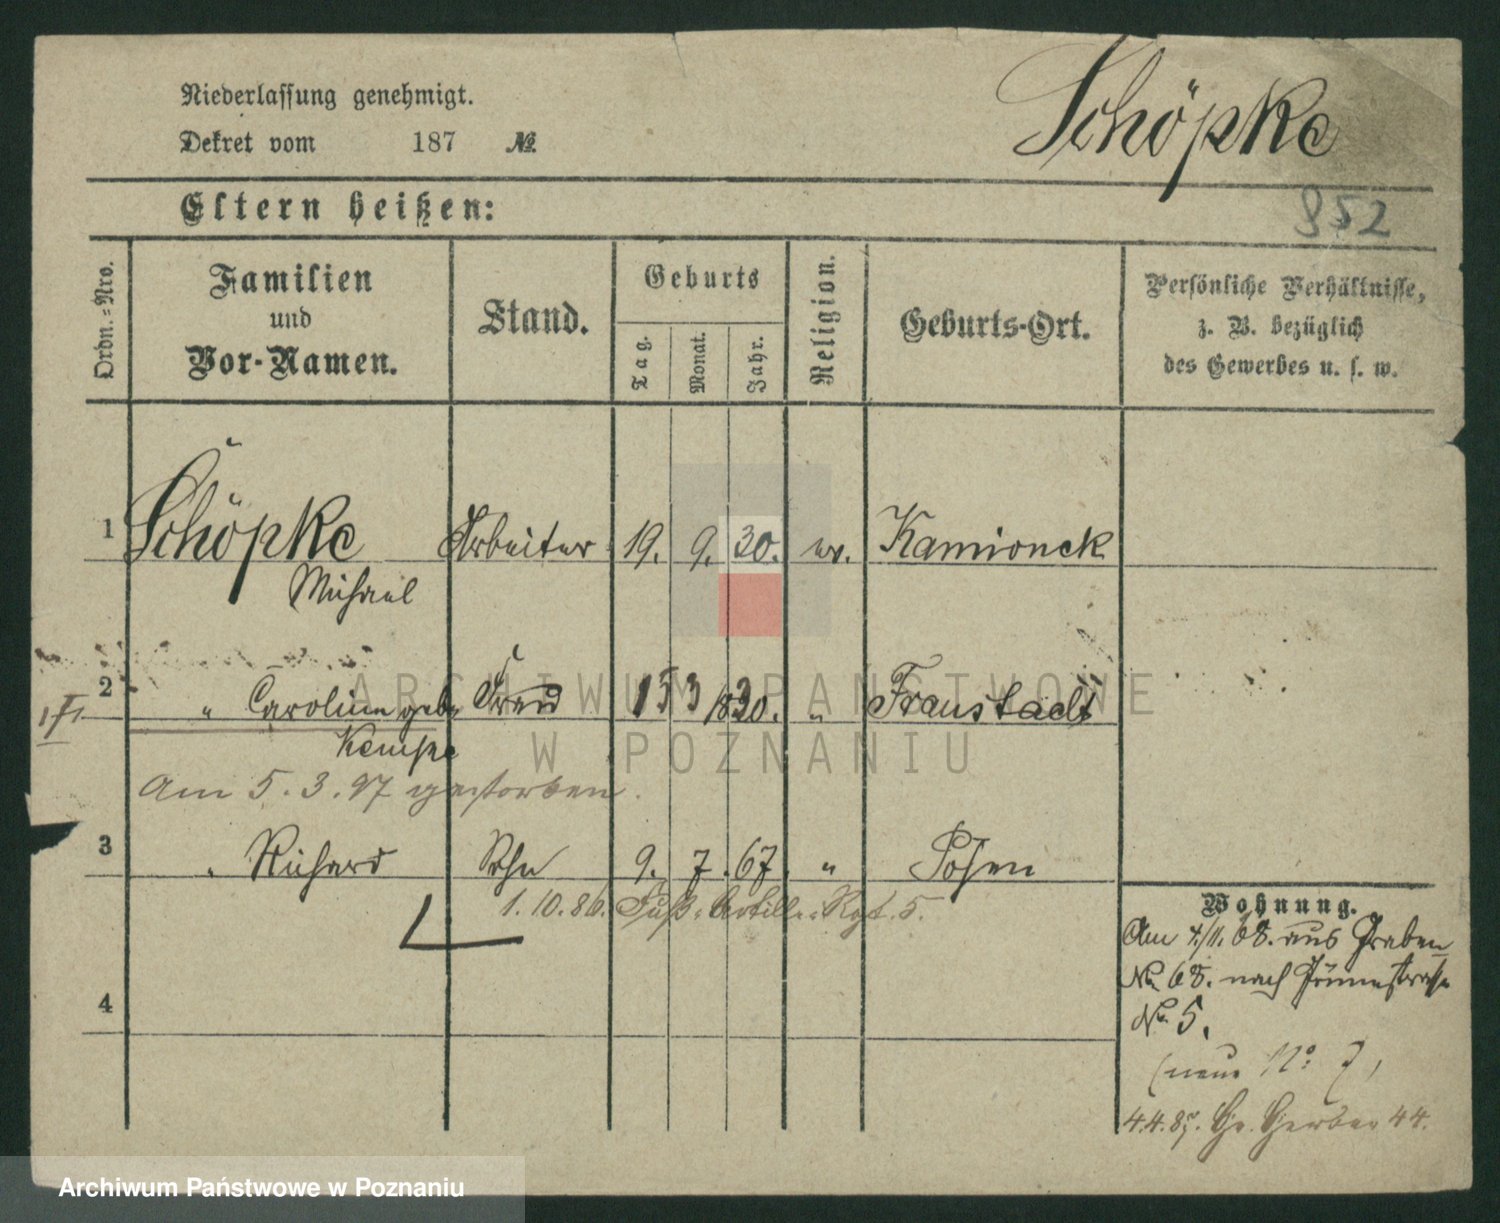 Niederlassung genehmigt.
Dekret vom 187 №
Schöpke
Eltern heißen:
952
Ordn.=Nro.
Familien
und
Vor-Namen.
Stand.
Geburts
Tag.
Monat.
Jahr.
Religion.
Geburts-Ort.
Persönliche Verhältnisse,
z. B. bezüglich
des Gewerbes u. s. w.
1 Schöpke Arbeiter 19. 9. 30. ev. Kamionek
Michael
2 " Caroline geb. Frau 15 3 1830. " Fraustadt
Kempe
Am 5.3.97 gestorben.
3 " Richard Sohn 9. 7. 67. " Posen
1.10.86. Fuß-Artill.-Rgt. 5.
4
Wohnung.
Am 4./11. 68. aus Graben
No. 68. nach
No. 5.
(neue No: 7)
4.4.87. Gr. Gerber 44.
ARCHIWUM PAŃSTWOWE
W POZNANIU
Archiwum Państwowe w Poznaniu